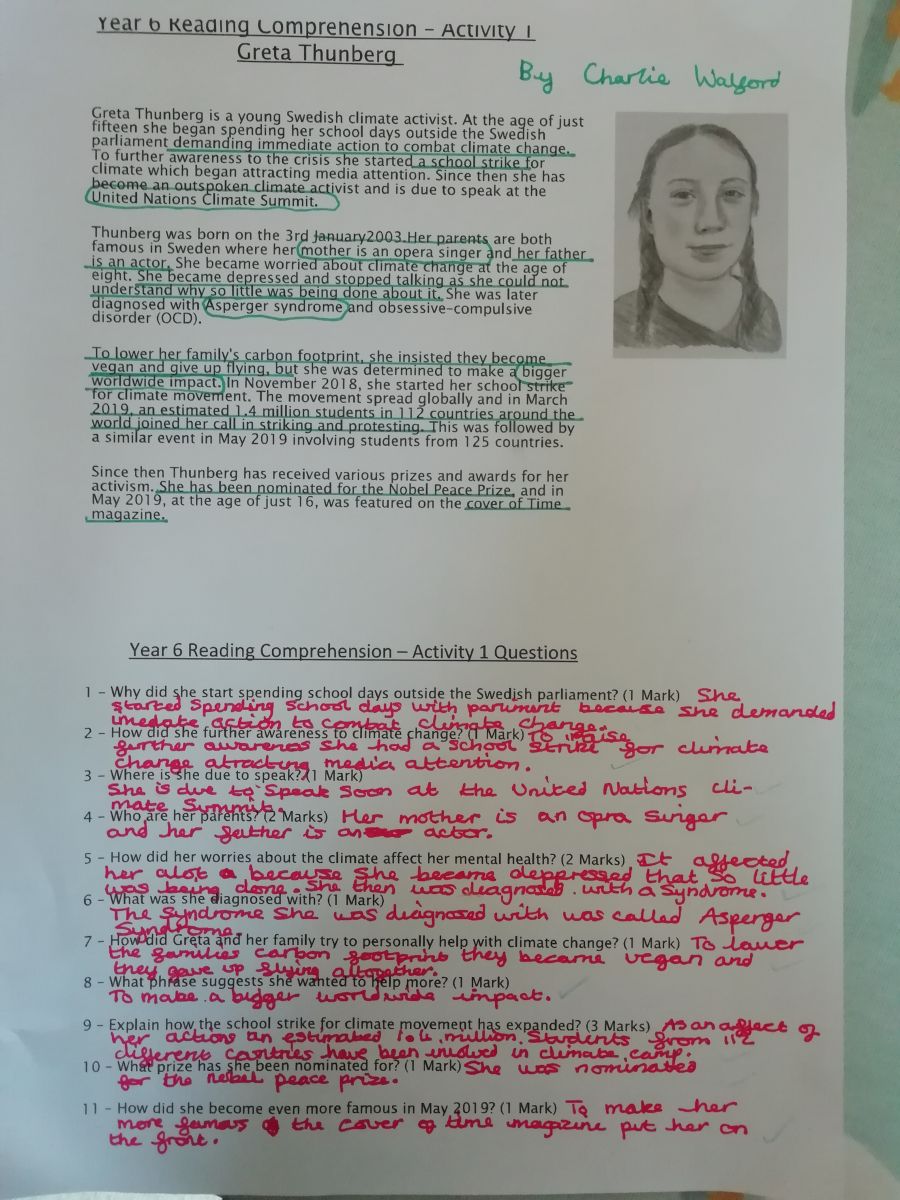 Year 6 Reading Comprehension – Activity 1
Greta Thunberg
By Charlie Walford
Greta Thunberg is a young Swedish climate activist. At the age of just
fifteen she began spending her school days outside the Swedish
parliament demanding immediate action to combat climate change.
To further awareness to the crisis she started a school strike for
climate which began attracting media attention. Since then she has
become an outspoken climate activist and is due to speak at the
United Nations Climate Summit.
Thunberg was born on the 3rd January2003.Her parents are both
famous in Sweden where her mother is an opera singer and her father
is an actor. She became worried about climate change at the age of
eight. She became depressed and stopped talking as she could not
understand why so little was being done about it. She was later
diagnosed with Asperger syndrome and obsessive-compulsive
disorder (OCD).
To lower her family's carbon footprint, she insisted they become
vegan and give up flying, but she was determined to make a bigger
worldwide impact. In November 2018, she started her school strike
for climate movement. The movement spread globally and in March
2019, an estimated 1.4 million students in 112 countries around the
world joined her call in striking and protesting. This was followed by
a similar event in May 2019 involving students from 125 countries.
Since then Thunberg has received various prizes and awards for her
activism. She has been nominated for the Nobel Peace Prize, and in
May 2019, at the age of just 16, was featured on the cover of Time
magazine.
Year 6 Reading Comprehension – Activity 1 Questions
1 – Why did she start spending school days outside the Swedish parliament? (1 Mark) She
started Spending School days with parliment because she demanded
imedate action to combat climate change.
2 – How did she further awareness to climate change? (1 Mark) To raise
further awarenes she had a school strike for climate
change atracting media attention.
3 – Where is she due to speak? (1 Mark)
She is due to Speak Soon at the United Nations cli-
mate Summit.
4 – Who are her parents? (2 Marks) Her mother is an opra singer
and her feither is an actor.
5 – How did her worries about the climate affect her mental health? (2 Marks) It affected
her alot because She became deppressed that so little
was being done. She then was deagnosed with a Syndrome.
6 – What was she diagnosed with? (1 Mark)
The Syndrome She was diagnosed with was called Asperger
Syndrome.
7 – How did Greta and her family try to personally help with climate change? (1 Mark) To lower
the families carbon footprint they became vegan and
they gave up flying altogether.
8 – What phrase suggests she wanted to help more? (1 Mark)
To make a bigger worldwide impact.
9 – Explain how the school strike for climate movement has expanded? (3 Marks) As an affect of
her actions an estimated 1.4 million Students from 112
different countries have been involved in climate camp.
10 – What prize has she been nominated for? (1 Mark) She was nominated
for the nobel peace prize.
11 – How did she become even more famous in May 2019? (1 Mark) To make her
more famous the cover of time magazine put her on
the front.